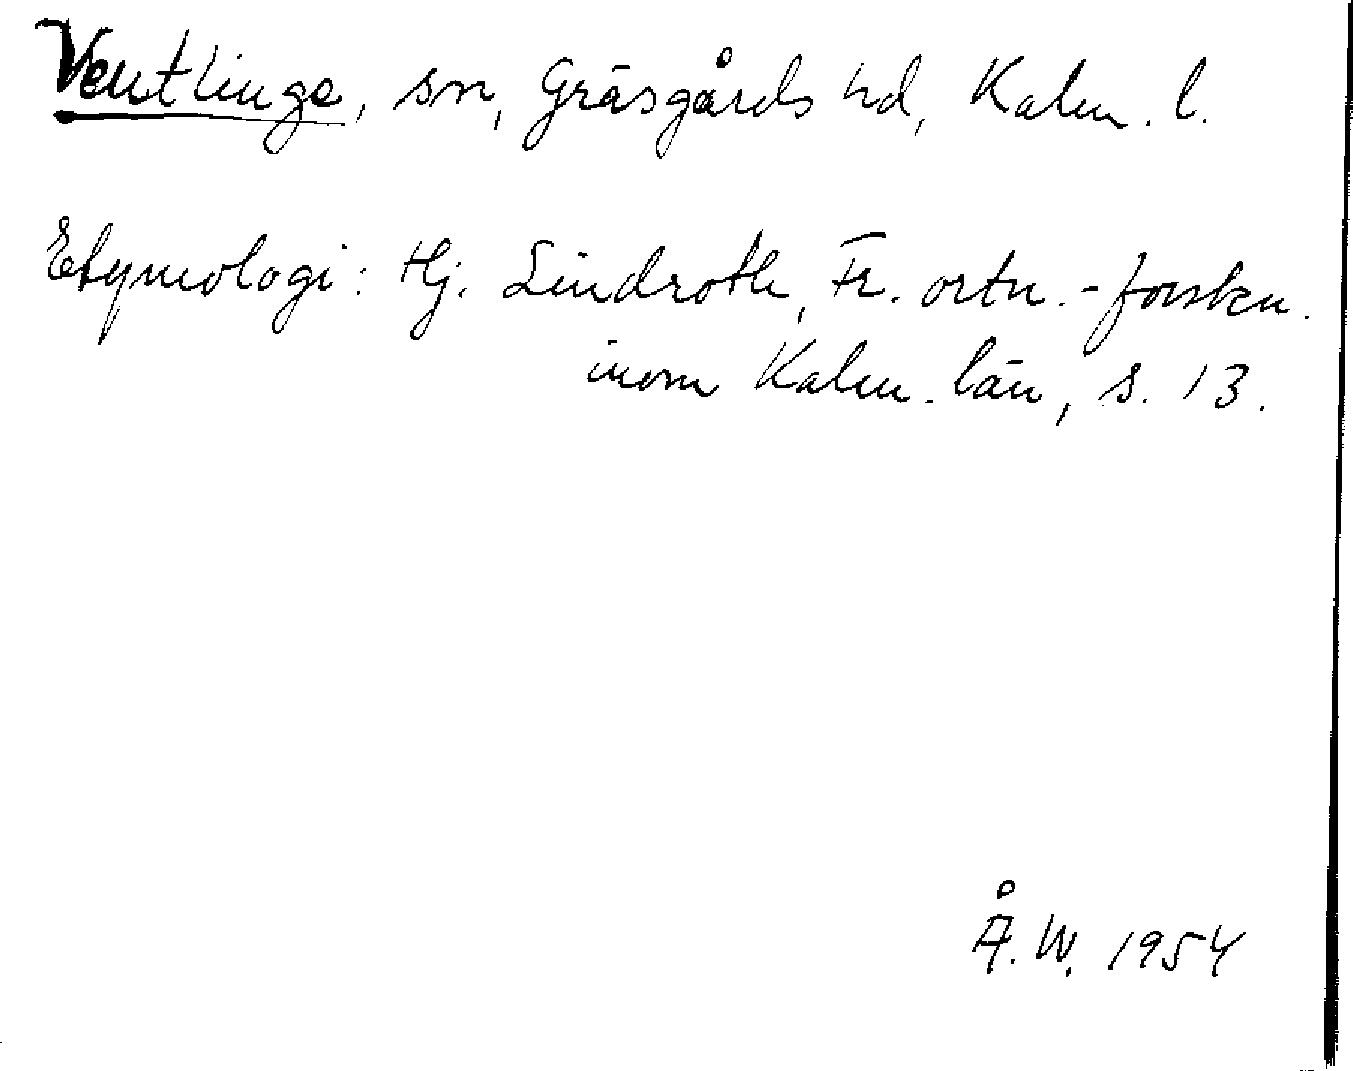 Ventlinge, sn, Gräsgårds hd, Kalm. l.
Etymologi: Hj. Lindroth, Fr. ortn.-forskn.
inom Kalm. län, s. 13.
Å. W. 1954